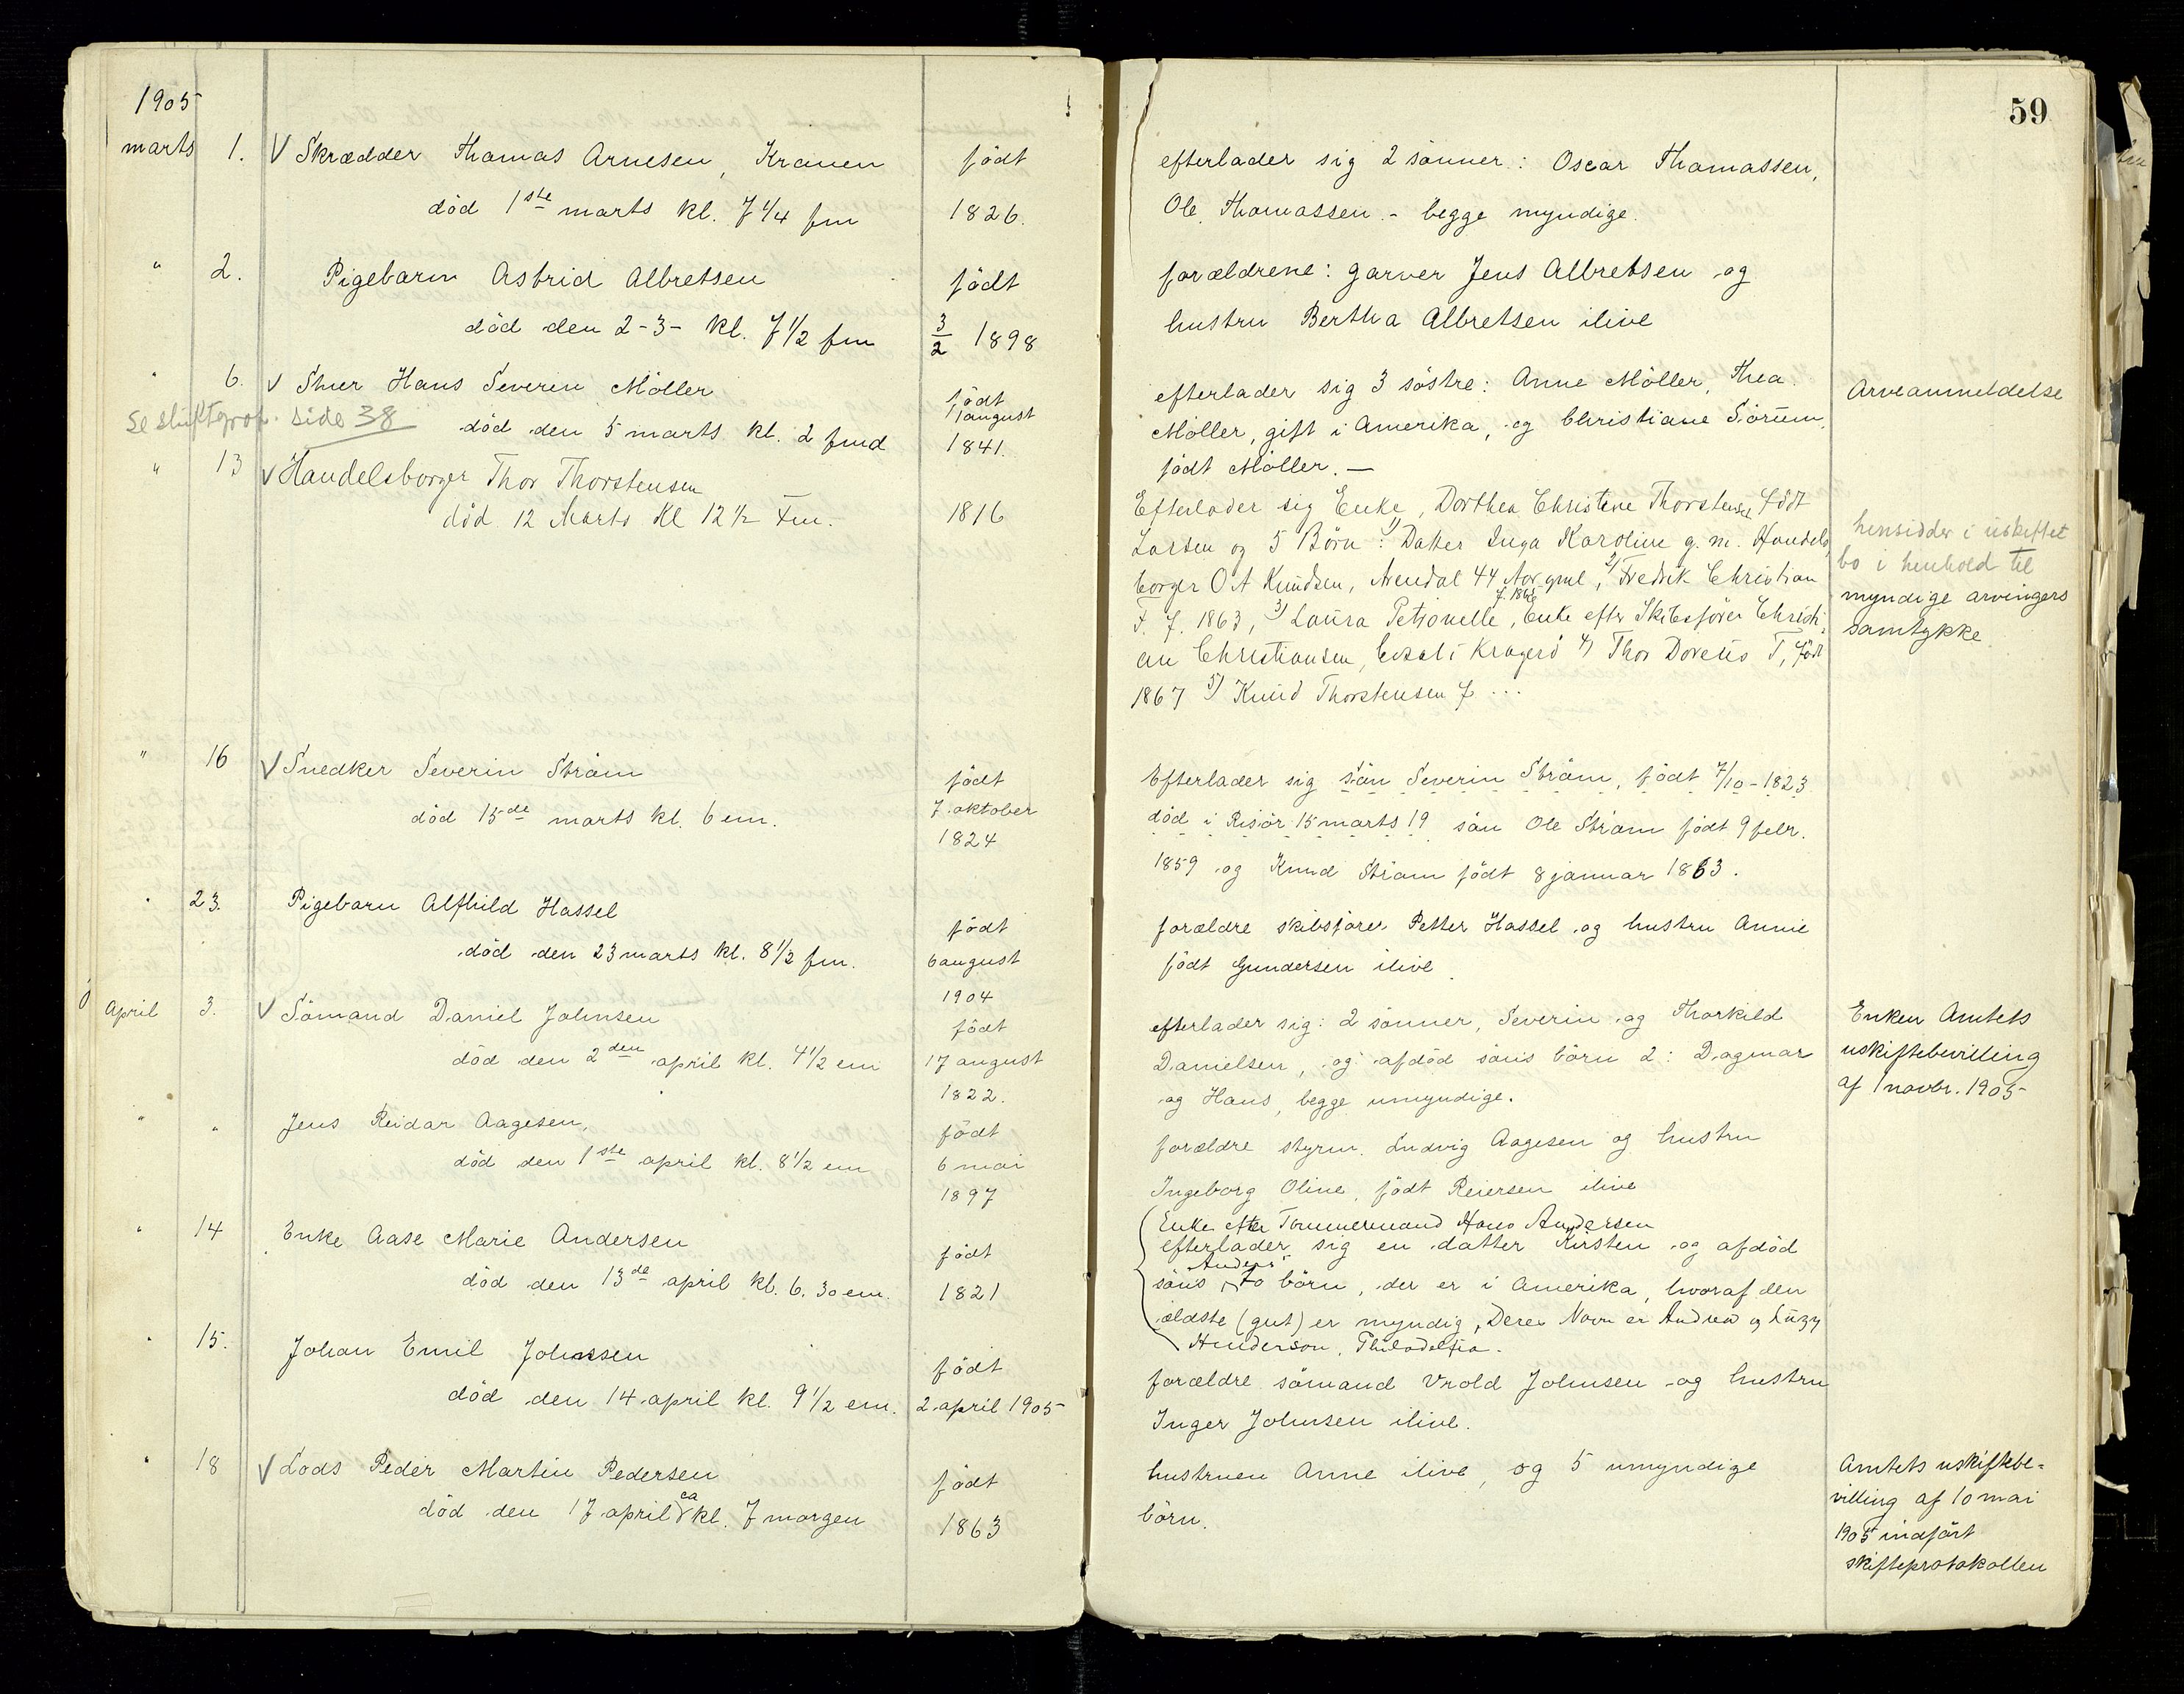 1905
59
marts 1. V Skrædder Thomas Arnesen, Kranen født
død 1ste marts kl. 7 1/4 fm 1826.
efterlader sig 2 sønner: Oscar Thomassen,
Ole Thomassen - begge myndige.
" 2. Pigebarn Astrid Albretsen født
død den 2-3- kl. 7 1/2 fm 3/2 1898
forældrene: garver Jens Albretsen og
hustru Bertha Albretsen ilive
" 6. V Hans Severin Møller født
se skiftprot. side 38 død den 5 marts kl. 2 fmd 11 august
1841.
efterlader sig 3 søstre: Anne Møller, Thea
Møller, gift i Amerika, og Christiane Sørum,
født Møller. —
Arveanmeldelse
" 13 V Handelsborger Thor Thorstensen
død 12 Marts Kl 12 1/2 Fm. 1816
Efterlader sig Enke, Dorthea Christine Thorstensen født
Larsen og 5 Børn: 1) Datter Inga Karoline g. m. Handels
borger O A Knudsen, Arendal 44 Aar gml, 2) Fredrik Christian
T. f. 1863, 3) Laura Petronelle, f. 1865 Enke efter Skibsfører Christi
an Christiansen, bosat i Kragerø 4) Thor Doreus T, født
1867 5) Knud Thorstensen f ...
hensidder i uskiftet
bo i henhold til
myndige arvingers
samtykke
" 16 V Snedker Severin Strøm født
død 15de marts kl. 6 em. 7. oktober
1824
Efterlader sig søn Severin Strøm, født 7/10-1823
død i Risør 15 marts 19 søn Ole Strøm født 9 febr.
1859 og Knud Strøm født 8 januar 1863.
" 23. Pigebarn Alfhild Hassel født
død den 23 marts kl. 8 1/2 fm. 6 august
1904
forældre skibsfører Petter Hassel og hustru Annie
født Gundersen ilive.
April 3. V Sømand Daniel Johnsen født
død den 2den april kl. 4 1/2 em 17 august
1822.
efterlader sig: 2 sønner, Severin og Thorkild
Danielsen, og afdød søns børn 2: Dagmar
og Hans, begge umyndige.
Enken Amtets
uskiftebevilling
af 1 novbr. 1905-
" " Jens Reidar Aagesen, født
død den 1ste april kl. 8 1/2 em 6 mai
1897
forældre styrm. Ludvig Aagesen og hustru
Ingeborg Oline, født Reiersen ilive
" 14 Enke Aase Marie Andersen født
død den 13de april kl. 6.30 em. 1821
Enke efter Tømmermand Hans Andersen
efterlader sig en datter Kirsten og afdød
søns Anders' to børn, der er i Amerika, hvoraf den
ældste (gut) er myndig, Deres Navn er Andrew og
Henderson, Philadelfia.
" 15. Johan Emil Johnssen født
død den 14 april kl. 9 1/2 em. 2 april 1905-
forældre sømand Vrold Johnsen og hustru
Inger Johnsen ilive.
" 18 V Lods Peder Martin Pedersen født
død den 17 april ca kl. 7 morgen 1863
hustruen Anne ilive, og 5 umyndige
børn.
Amtets uskiftebe=
villing af 10 mai
1905 indført
skifteprotokollen